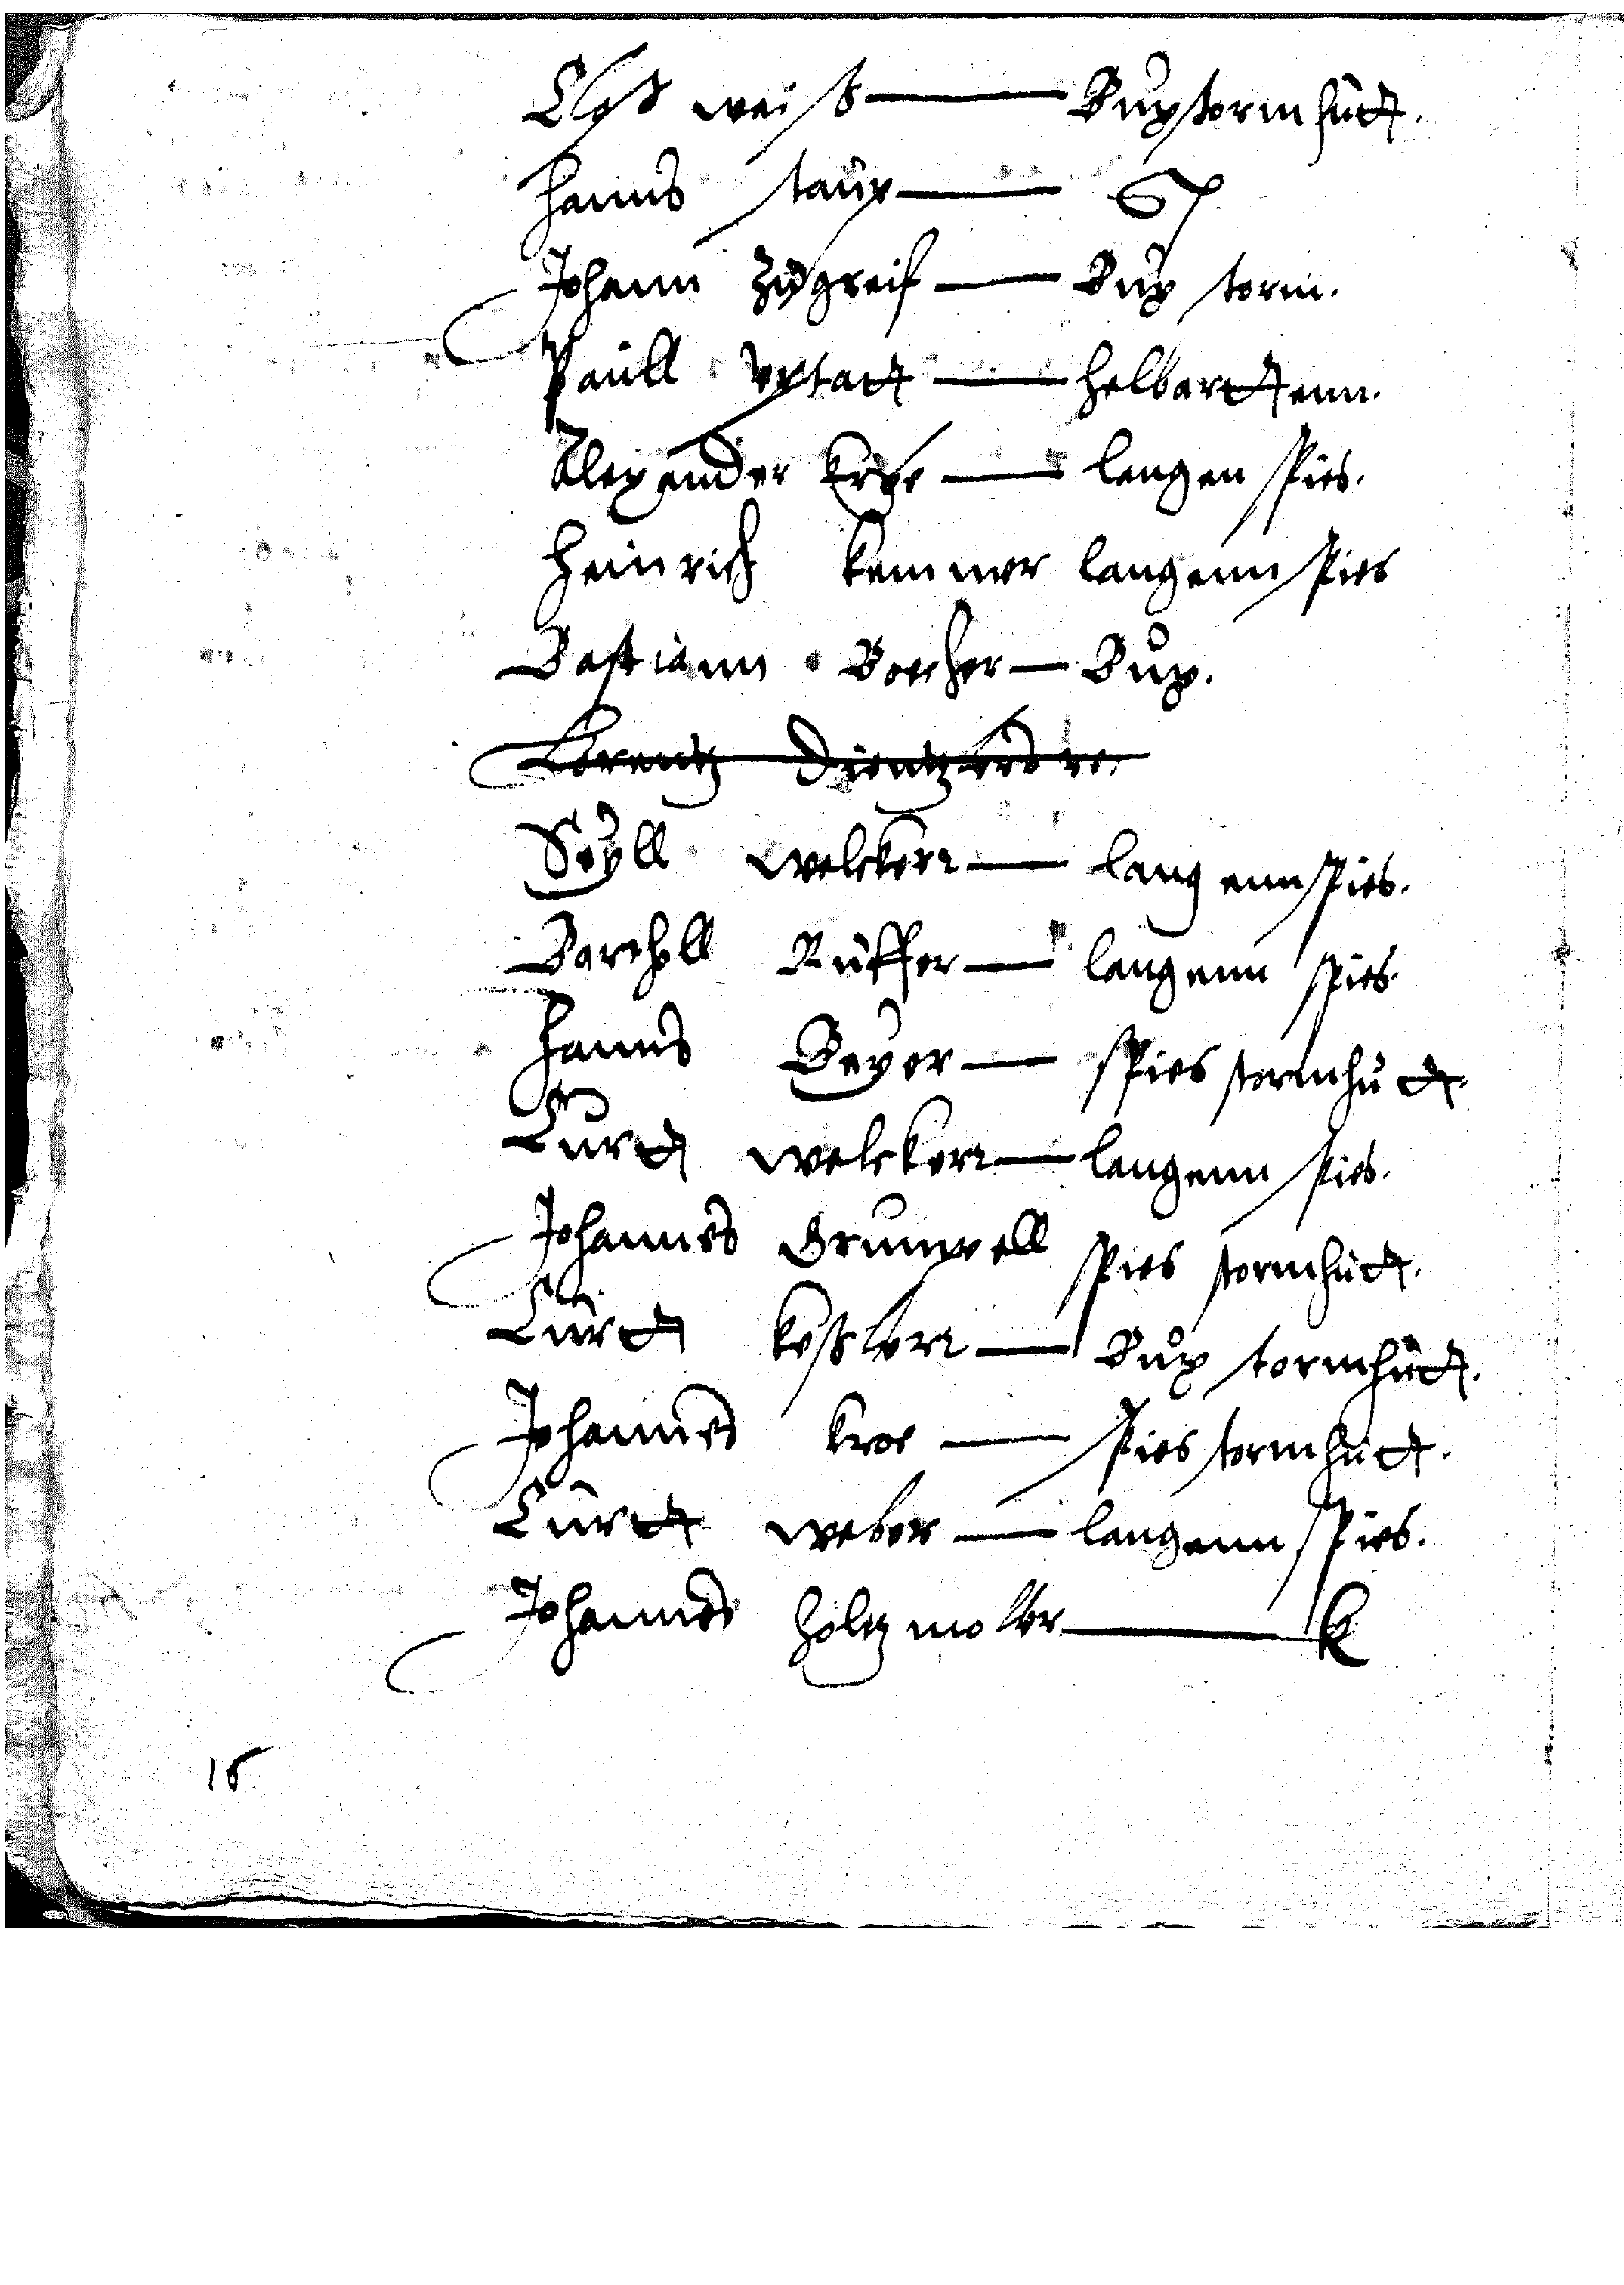 Cloß weiß — Bux stormhudt.
Hanns staux —
Johann Zugreif — Bux storm.
Paull — helbardtenn.
Alexander Erbe — langen spies.
Heinrich kemmer langenn spies
Bastiann Borcher — Bux.
Lorentz
Seyll welcker — langenn spies.
Barthell Ruffer — langenn spies.
Hanns Beyer — spies stormhudt.
Curdt welcker — langenn spies.
Johannes Grunwell spies stormhudt.
Curdt keßler — Bux stormhudt.
Johannes kroe — spies stormhudt.
Curdt weber — langenn spies.
Johannes holtzmoller —